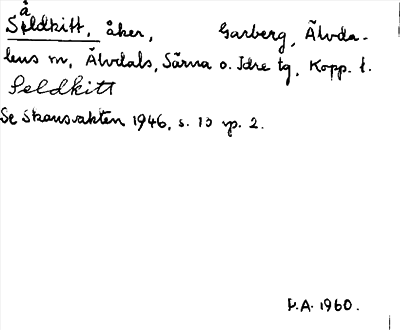 Såldkitt, åker, Garberg, Älvda-
lens sn, Älvdals, Särna o. Idre tg, Kopp. l.
Seldkitt
Se Skansvakten 1946, s. 13 sp. 2.
P.A. 1960.